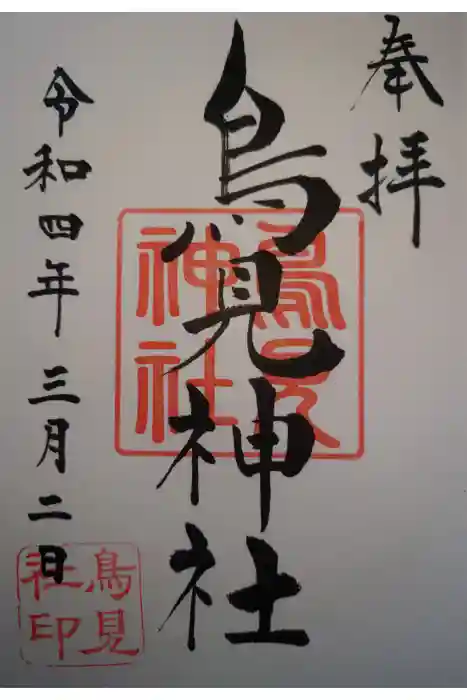 奉拝
鳥見神社
鳥見
神社
令和四年三月二日
鳥見
社印